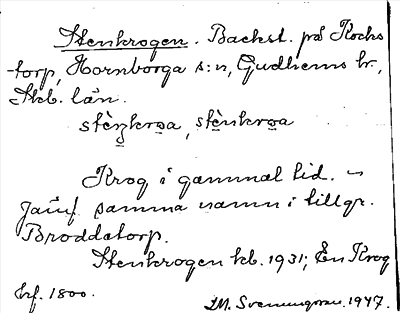 Stenkrogen. Backst. på Kocks
torp, Hornborga s:n, Gudhems hd.,
Skb. län.
stèŋkrɷa, stènkrɷa
Krog i gammal tid. –
Jämf. samma namn i tillgr.
Broddetorp.
Stenkrogen kb. 1931; En Krog
hf. 1800.
I.M. Svenungsson. 1947.